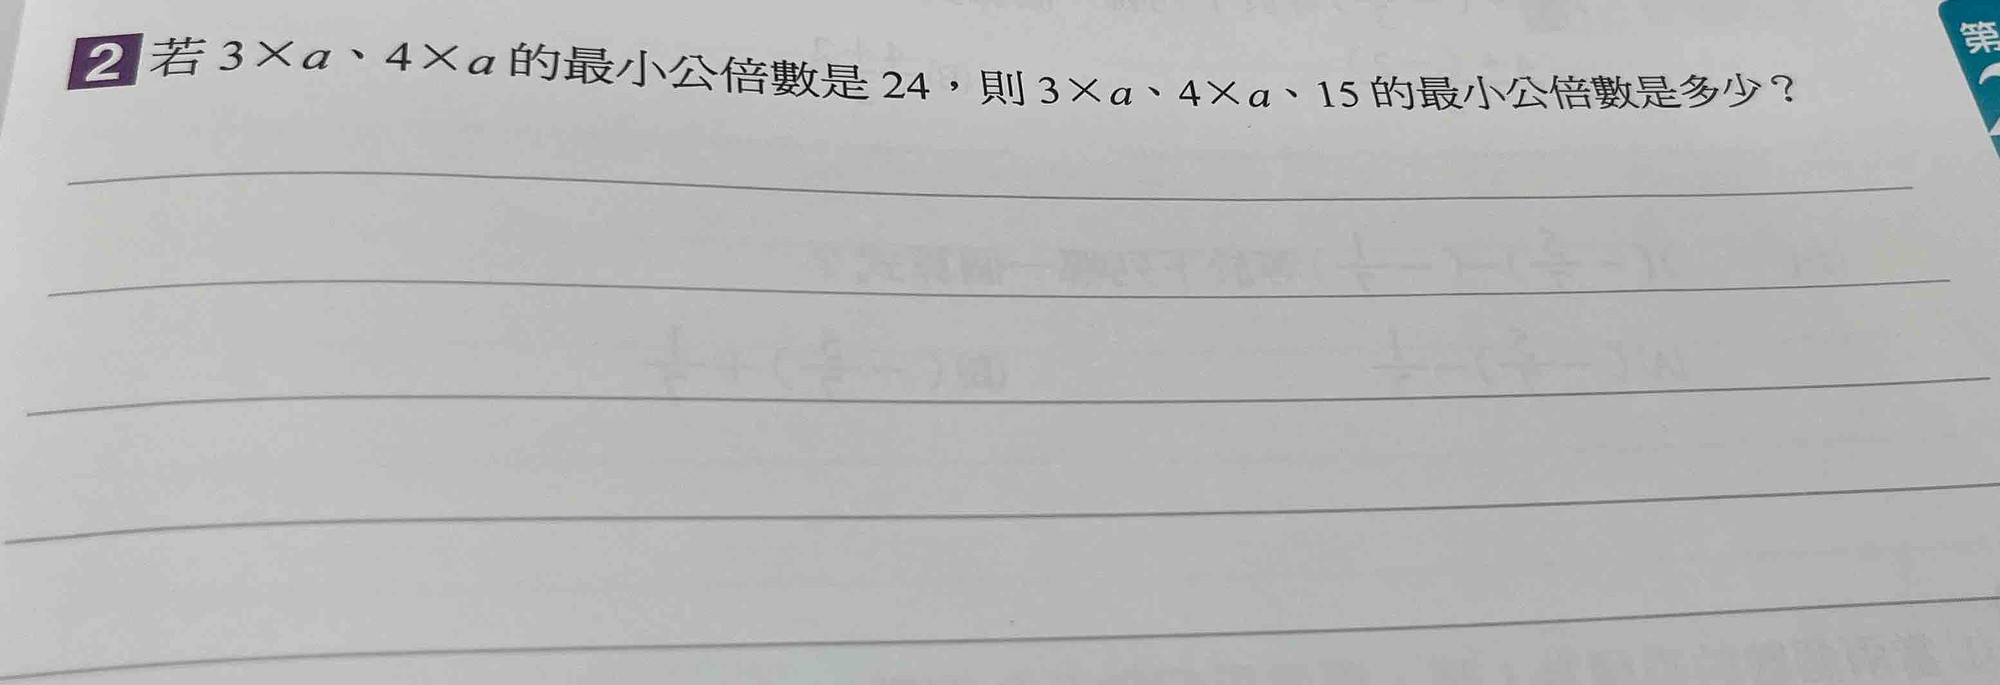 2 若 3×a、4×a 的最小公倍數是 24,則 3×a、4×a、15 的最小公倍數是多少?
第